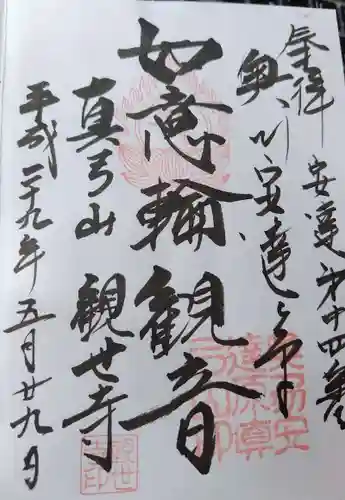 奉拝 安達第十四番
奥の川安達ヶ原
如意輪観音
真弓山 観世寺
平成二十九年五月廿九日